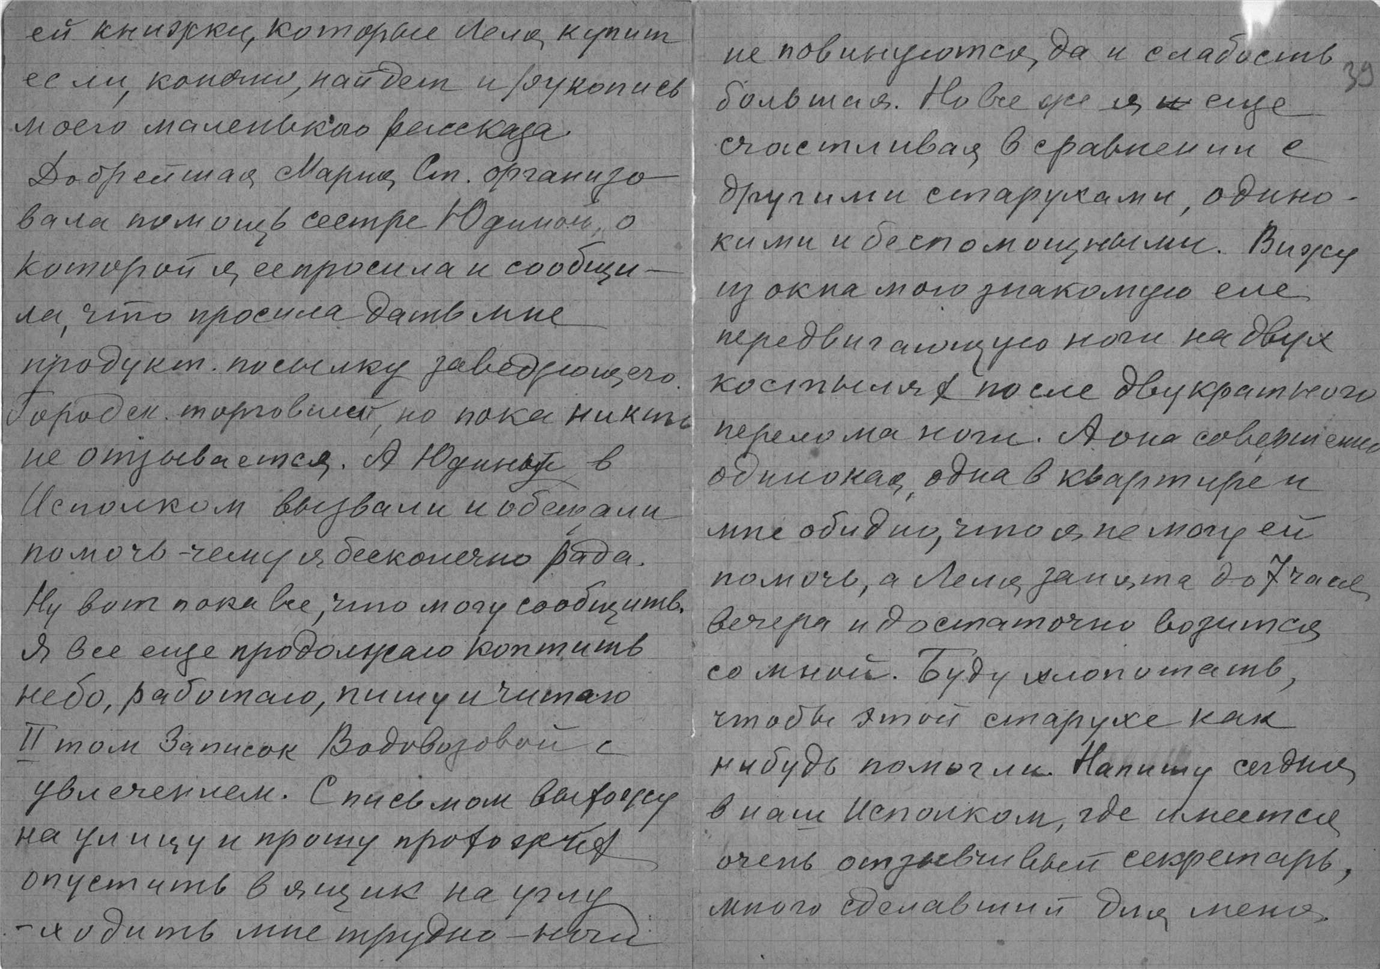 ей книжки, которые Леля купит
если, конечно, найдет и рукопись
моего маленького рассказа.
Добрейшая Мария Ст. организо-
вала помощь сестре Юдиной, о
которой я ее просила и сообщи-
ла, что просила дать мне
продукт. посылку заведующего
Городск. торговлей, но пока никто
не отзывается. А Юдиной в
Исполком вызвали и обещали
помочь - чему я бесконечно рада.
Ну вот пока все, что могу сообщить.
Я все еще продолжаю коптить
небо, работаю, пишу и читаю
II том Записок Водовозовой с
увлечением. С письмом выхожу
на улицу и прошу прохожих
опустить в ящик на углу
- ходить мне трудно - ноги
не повинуются, да и слабость
39
большая. Но все же я еще
счастливая в сравнении с
другими старухами, одино-
кими и беспомощными. Вижу
из окна мою знакомую еле
передвигающую ноги на двух
костылях после двукратного
перелома ноги. А она совершенно
одинокая, одна в квартире и
мне обидно, что я не могу ей
помочь, а Леля занята до 7 часов
вечера и достаточно возится
со мной. Буду хлопотать,
чтобы этой старухе как
нибудь помогли. Напишу сегодня
в наш Исполком, где имеется
очень отзывчивый секретарь,
много сделавший для меня.